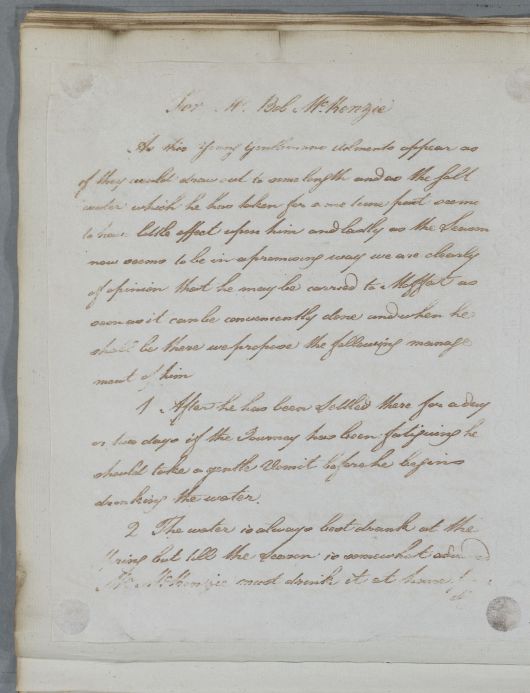 For Mr. Bob McKenzie
As this young Gentlemans ailments appear as
if they would draw out to some length and as the salt
water which he has taken for some time past seems
to have little effect upon him and lastly as the Season
now seems to be in a promising way we are clearly
of opinion that he may be carried to Moffat as
soon as it can be conveniently done and when he
shall be there we propose the following manage
ment of him
1 After he has been Settled there for a day
or two days if the Journey has been fatiguing he
should take a gentle Vomit before he begins
drinking the water.
2 The water is always best drank at the
Spring but till the Season is somewhat advanced
Mr. McKenzie must drink it at home